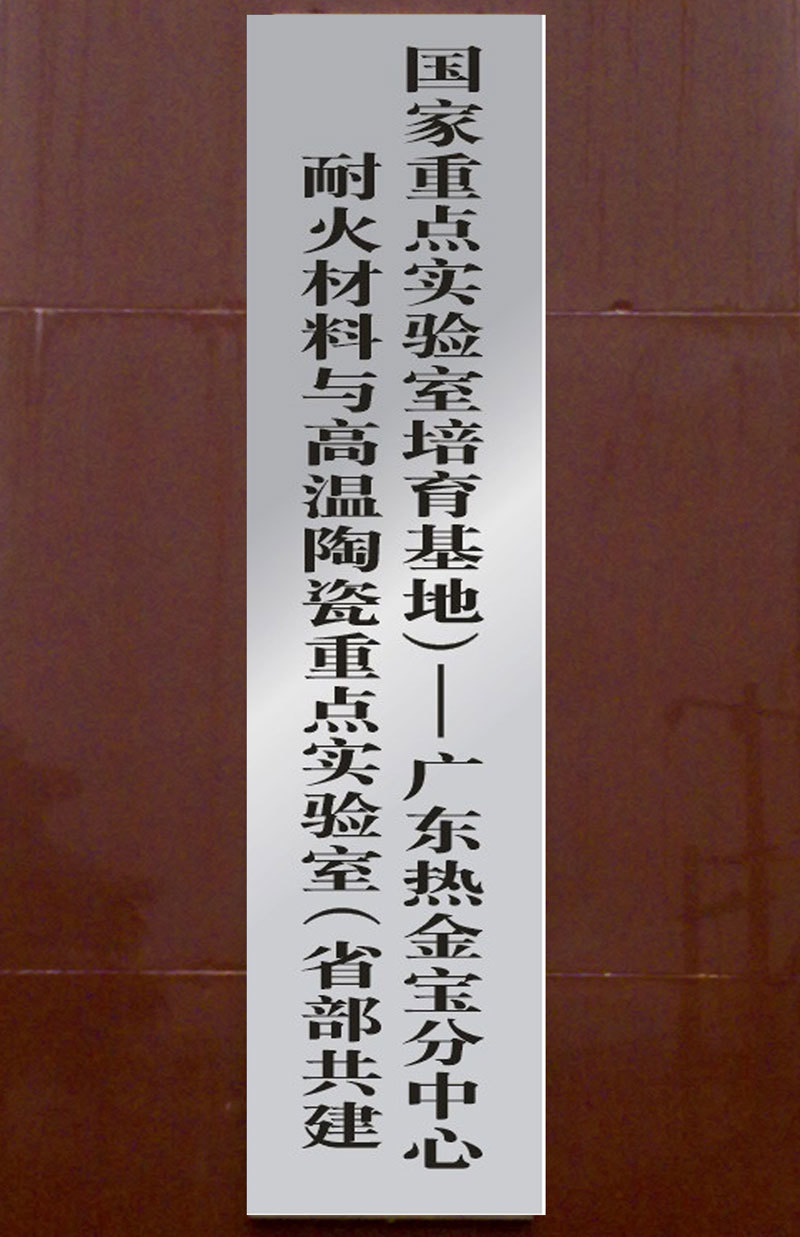 耐火材料与高温陶瓷重点实验室(省部共建
国家重点实验室培育基地)——广东热金宝分中心